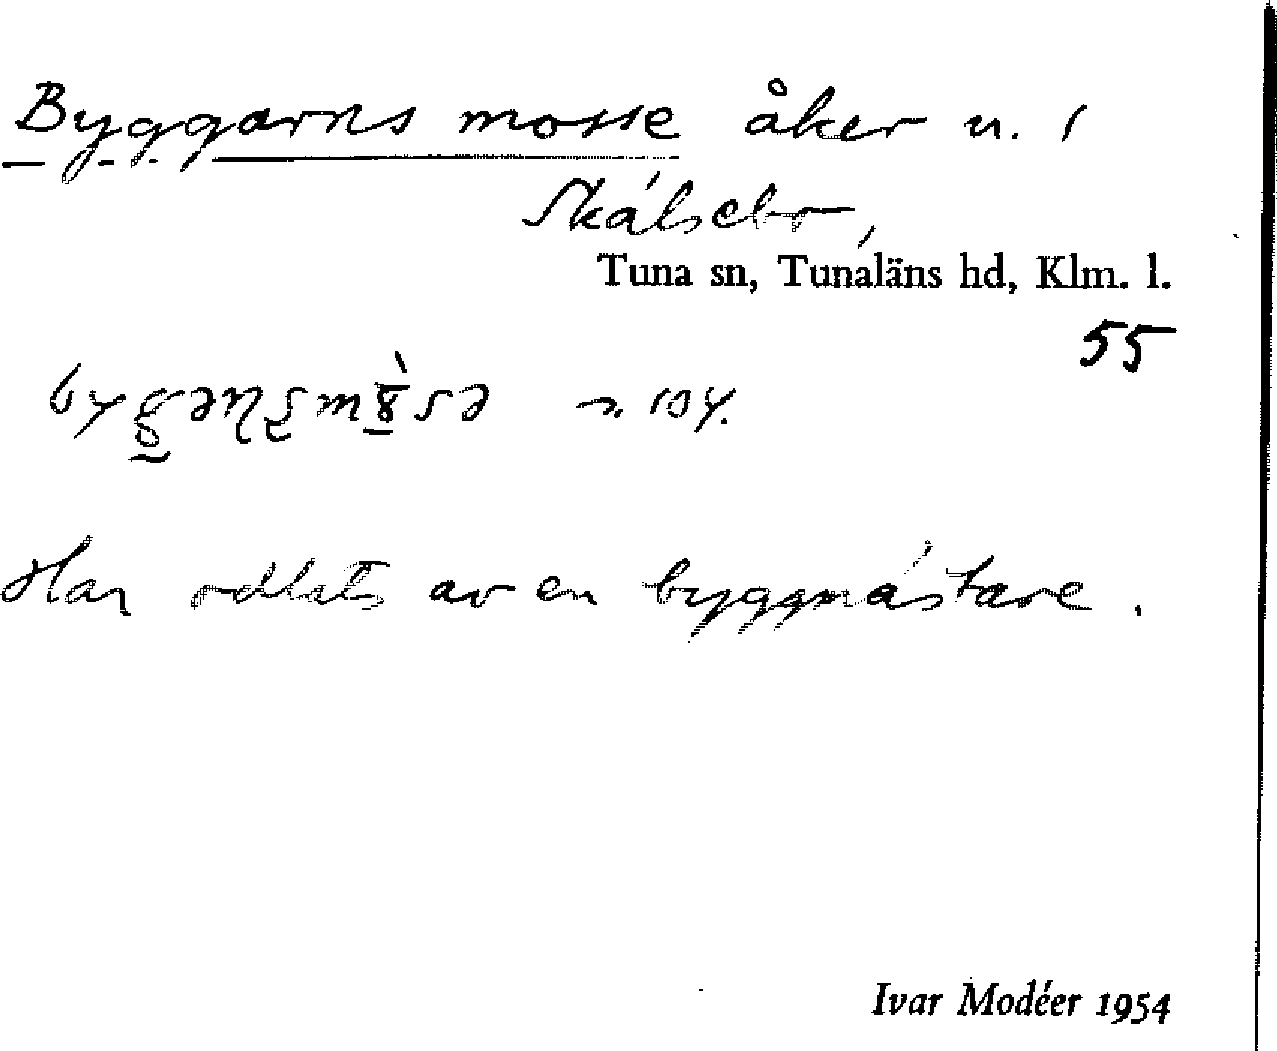 Byggarns mosse åker n. 1
Skálsebo,
Tuna sn, Tunaläns hd, Klm. l.
55
Har odlats av en byggmástare.
Ivar Modéer 1954